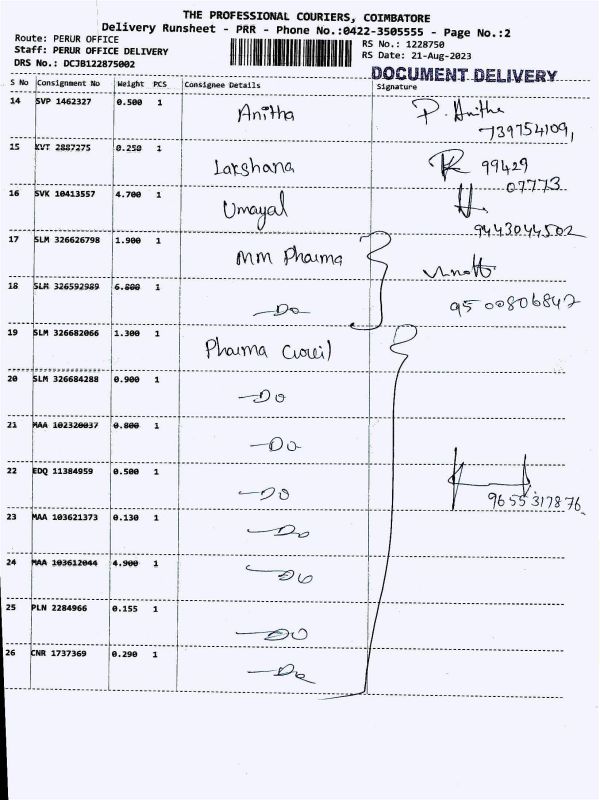 THE PROFESSIONAL COURIERS, COIMBATORE
Delivery Runsheet - PRR - Phone No.:0422-3505555 - Page No.:2
Route: PERUR OFFICE
RS No.: 1228750
Staff: PERUR OFFICE DELIVERY
RS Date: 21-Aug-2023
DRS No.: DCJB122875002
DOCUMENT DELIVERY
S No Consignment No Weight PCS Consignee Details Signature
14 SVP 1462327 0.500 1 Anitha P. Anitha
7397541091
15 KVT 2887275 0.250 1 Lakshana 99429
07773
16 SVK 10413557 4.700 1 Umayal
9443044502
17 SLM 326626798 1.900 1 MM Pharma
18 SLM 326592989 6.800 1 Do 9500806847
19 SLM 326682066 1.300 1 Pharma
20 SLM 326684288 0.900 1 Do
21 MAA 102320037 0.800 1 Do
22 EDQ 11384959 0.500 1 Do 9655317876
23 MAA 103621373 0.130 1 Do
24 MAA 103612044 4.900 1 Do
25 PLN 2284966 0.155 1 Do
26 CNR 1737369 0.290 1 Do